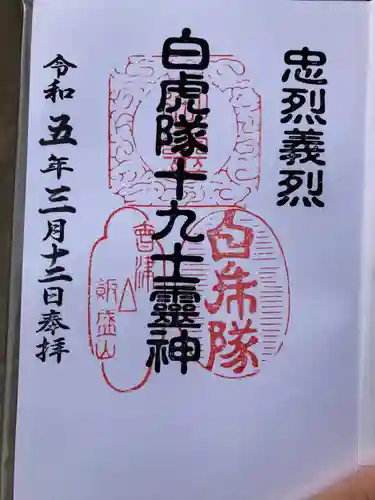 忠烈義烈
白虎隊十九士霊神
白虎隊
會津
飯盛山
令和五年三月十二日奉拝